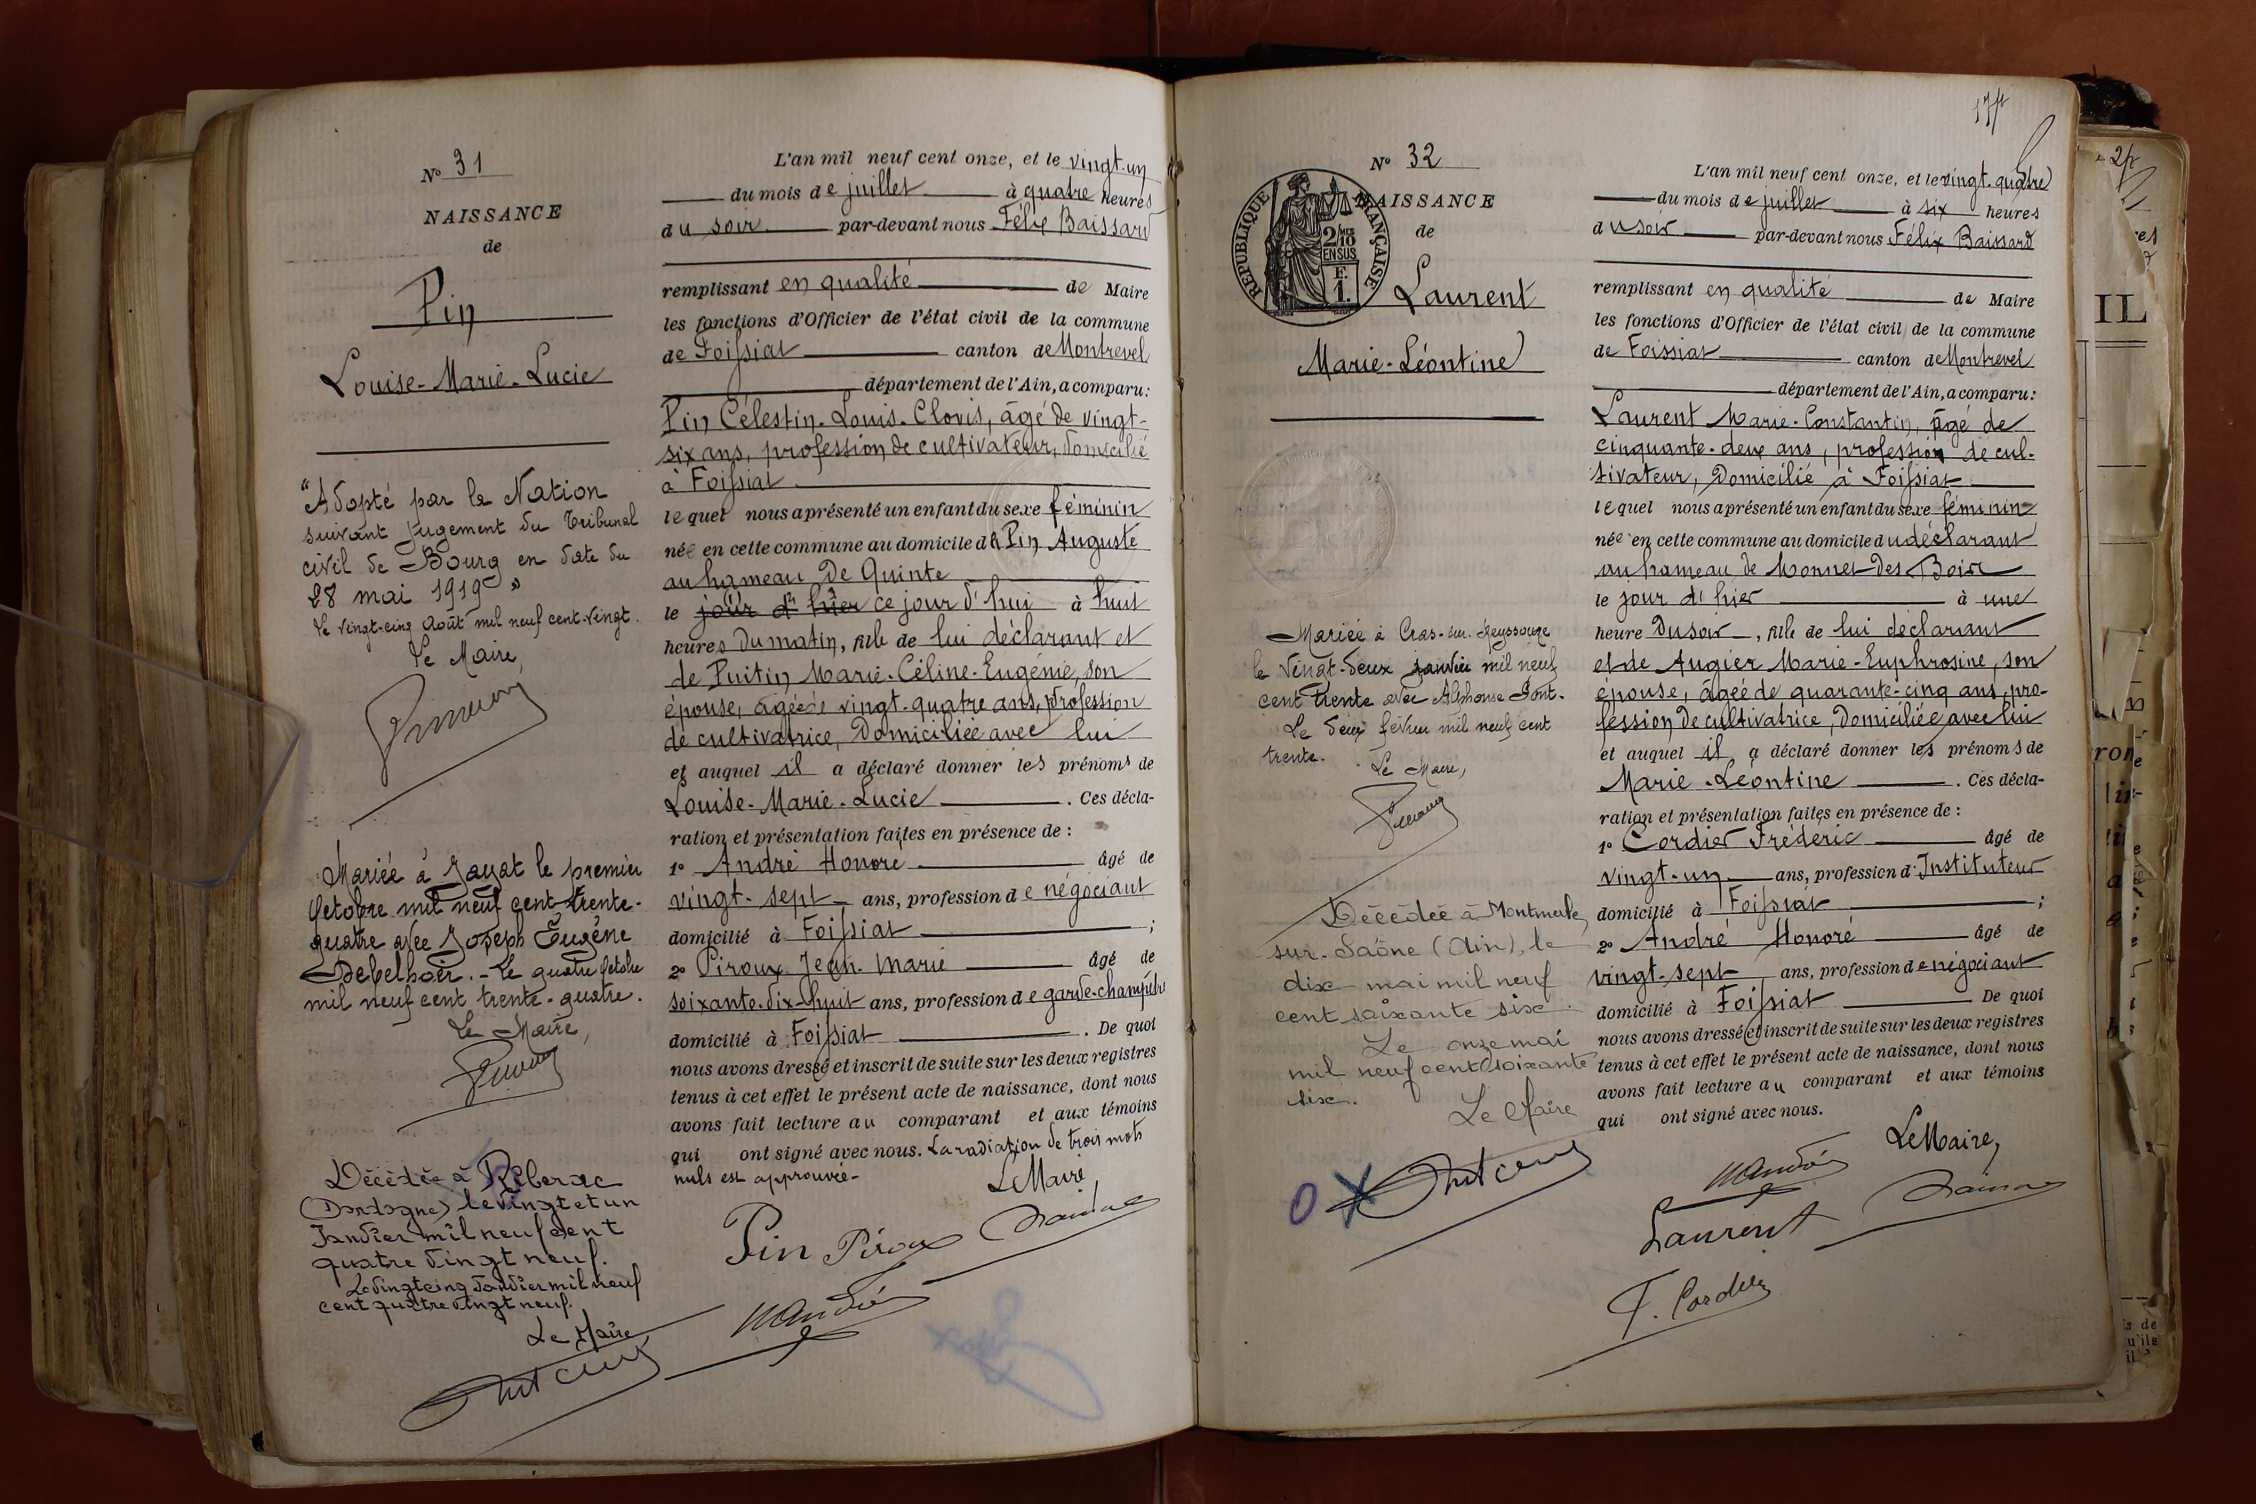 N° 31
NAISSANCE
de
Pin
Louise-Marie-Lucie
"Adopté par la Nation
suivant jugement du Tribunal
civil de Bourg en date du
28 mai 1919"
Le vingt-cinq Août mil neuf cent-vingt.
Le Maire,
Mariée à Jayat le premier
Octobre mil neuf cent trente-
quatre avec Joseph Eugène
Debelhoir. - Le quatre Octobre
mil neuf cent trente-quatre.
Le Maire,
Décédée à Riberac
(Dordogne) le vingt et un
Janvier mil neuf cent
quatre vingt neuf.
Le vingt cinq Janvier mil neuf
cent quatre vingt neuf.
Le Maire
L'an mil neuf cent onze, et le vingt-un
du mois de juillet à quatre heures
du soir par-devant nous Félix Baissard
remplissant en qualité de Maire
les fonctions d'Officier de l'état civil de la commune
de Foissiat canton de Montrevel
département de l'Ain, a comparu:
Pin Célestin-Louis-Clovis, âgé de vingt-
six ans, profession de cultivateur, domicilié
à Foissiat
lequel nous a présenté un enfant du sexe féminin
née en cette commune au domicile de Pin Auguste
au hameau de Quinte
le jour d'hier ce jour d'hui à huit
heures du matin, fille de lui déclarant et
de Puitin Marie-Céline-Eugénie, son
épouse, âgée de vingt-quatre ans, profession
de cultivatrice, domiciliée avec lui
et auquel il a déclaré donner les prénoms de
Louise-Marie-Lucie. Ces décla-
ration et présentation faites en présence de :
1° André Honoré âgé de
vingt-sept ans, profession de négociant
domicilié à Foissiat ;
2° Piroux Jean-Marie âgé de
soixante-dix-huit ans, profession de garde-champêtre
domicilié à Foissiat. De quoi
nous avons dressé et inscrit de suite sur les deux registres
tenus à cet effet le présent acte de naissance, dont nous
avons fait lecture au comparant et aux témoins
qui ont signé avec nous. La radiation de trois mots
nuls est approuvée-
Le Maire,
Pin Piroux
N° 32
NAISSANCE
de
RÉPUBLIQUE FRANÇAISE
2/10
EN SUS
F.
1.
Laurent
Marie-Léontine
Mariée à Cras-sur-Reyssouze
le vingt-deux janvier mil neuf
cent trente avec Alphonse Pont.
Le deux février mil neuf cent
trente.
Le Maire,
Décédée à Montmerle
sur-Saône (Ain), le
dix mai mil neuf
cent soixante six.
Le onze mai
mil neuf cent soixante
six.
Le Maire
L'an mil neuf cent onze, et le vingt-quatre
du mois de juillet à six heures
du soir par-devant nous Félix Baissard
remplissant en qualité de Maire
les fonctions d'Officier de l'état civil de la commune
de Foissiat canton de Montrevel
département de l'Ain, a comparu:
Laurent Marie-Constantin, âgé de
cinquante-deux ans, profession de cul-
tivateur, domicilié à Foissiat
lequel nous a présenté un enfant du sexe féminin
née en cette commune au domicile du déclarant
au hameau de Monnet des Bois
le jour d'hier à une
heure du soir, fille de lui déclarant
et de Augier Marie-Euphrosine, son
épouse, âgée de quarante-cinq ans, pro-
fession de cultivatrice, domiciliée avec lui
et auquel il a déclaré donner les prénoms de
Marie-Léontine. Ces décla-
ration et présentation faites en présence de :
1° Cordier Fréderic âgé de
vingt-un ans, profession d'Instituteur
domicilié à Foissiat ;
2° André Honoré âgé de
vingt-sept ans, profession de négociant
domicilié à Foissiat De quoi
nous avons dressé et inscrit de suite sur les deux registres
tenus à cet effet le présent acte de naissance, dont nous
avons fait lecture au comparant et aux témoins
qui ont signé avec nous.
Le Maire,
Laurent
F. Cordier